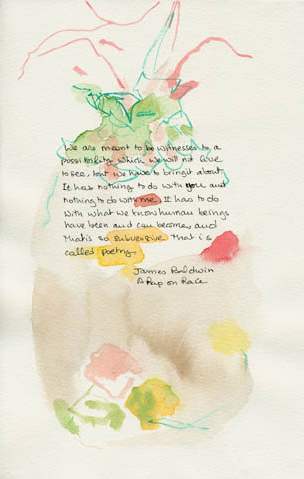 We are meant to be witnesses to a
possibility which we will not live
to see, but we have to bring it about.
It has nothing to do with you and
nothing to do with me. It has to do
with what we know human beings
have been and can become, and
that is so subversive that is
called poetry.
James Baldwin
A Rap on Race